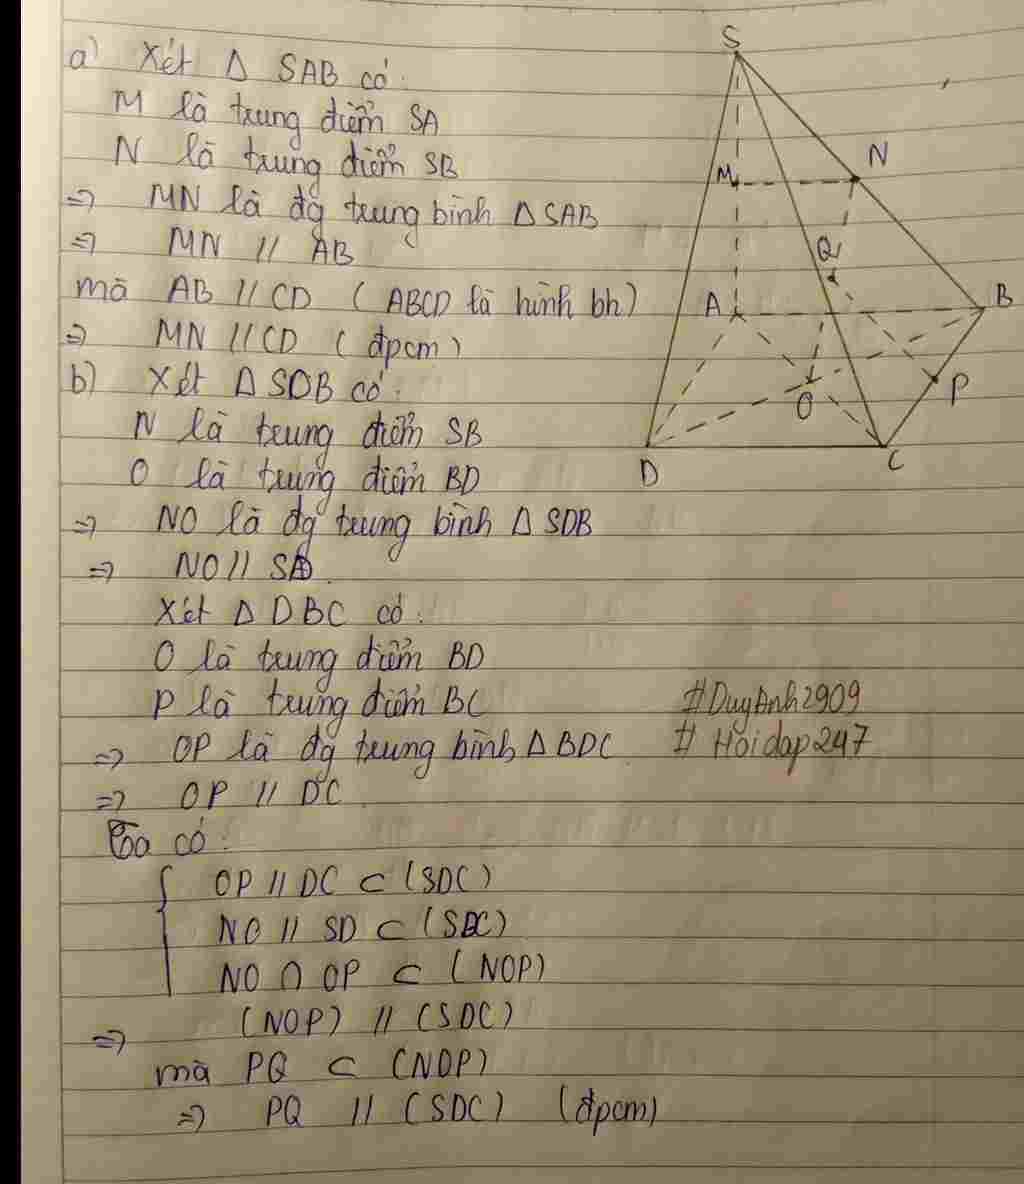 a) Xét Δ SAB có:
M là trung điểm SA
N là trung điểm SB
=> MN là đg trung bình Δ SAB
=> MN // AB
mà AB // CD ( ABCD là hình bh)
=> MN // CD ( đpcm)
b) Xét Δ SDB có:
N là trung điểm SB
O là trung điểm BD
=> NO là đg trung bình Δ SDB
=> NO // SD
Xét Δ DBC có:
O là trung điểm BD
P là trung điểm BC
=> OP là đg trung bình Δ BDC
=> OP // DC
Ta có:
OP // DC ⊂ (SDC)
NO // SD ⊂ (SDC)
NO ∩ OP ⊂ (NOP)
=> (NOP) // (SDC)
mà PQ ⊂ (NOP)
=> PQ // (SDC) (đpcm)
#DuyAnh2909
# Hoidap247
S
N
M
Q
A
B
O
P
D
C